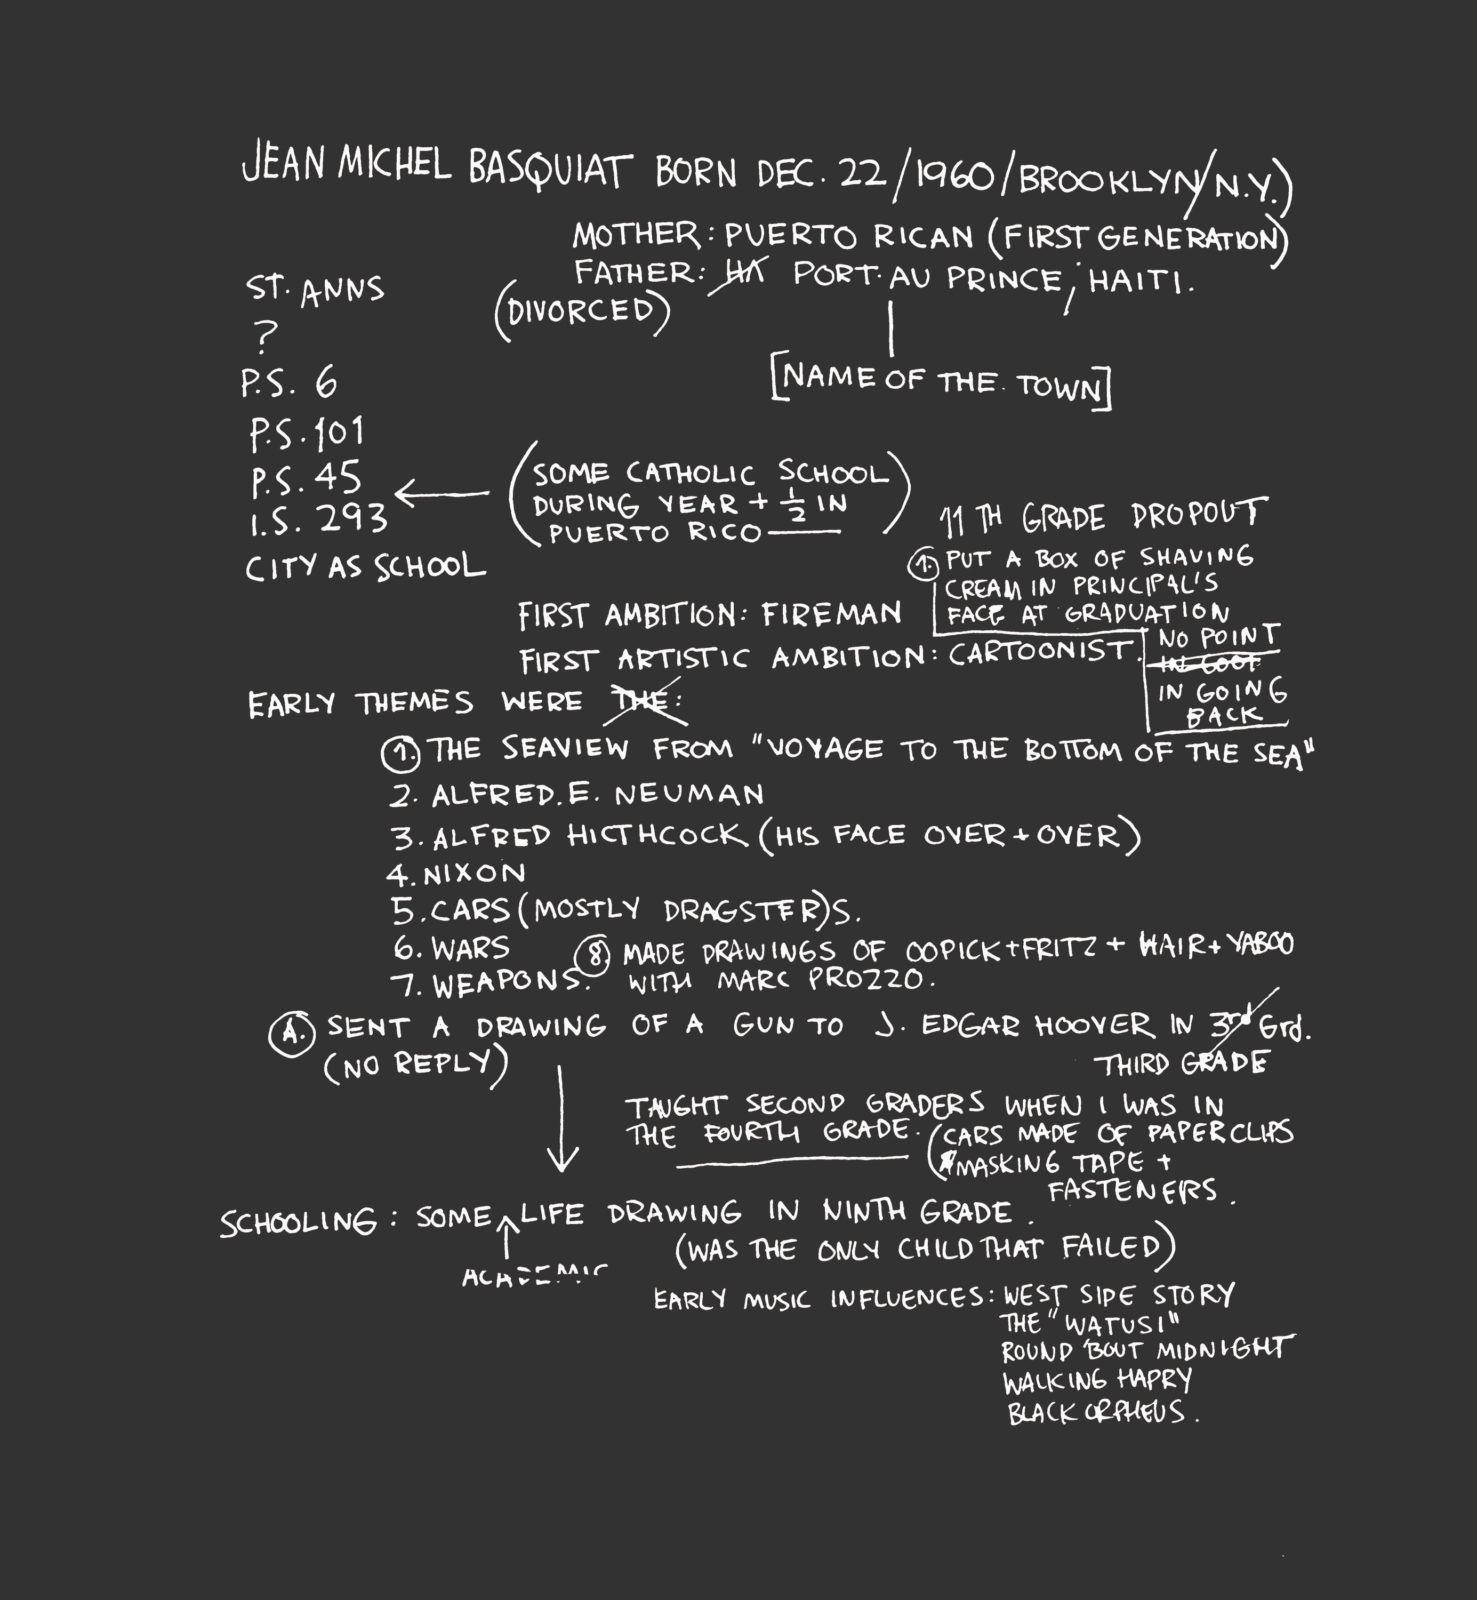 JEAN MICHEL BASQUIAT BORN DEC. 22/1960/BROOKLYN/N.Y.)
MOTHER: PUERTO RICAN (FIRST GENERATION)
FATHER: HA PORT. AU PRINCE, HAITI.
(DIVORCED)
[NAME OF THE. TOWN]
ST. ANNS
?
P.S. 6
P.S. 101
P.S. 45
I.S. 293
CITY AS SCHOOL
(SOME CATHOLIC SCHOOL
DURING YEAR + 1/2 IN
PUERTO RICO)
11 TH GRADE DROPOUT
1. PUT A BOX OF SHAVING
CREAM IN PRINCIPAL'S
FACE AT GRADUATION
NO POINT
IN GOING
BACK
FIRST AMBITION: FIREMAN
FIRST ARTISTIC AMBITION: CARTOONIST.
EARLY THEMES WERE THE:
1. THE SEAVIEW FROM "VOYAGE TO THE BOTTOM OF THE SEA"
2. ALFRED. E. NEUMAN
3. ALFRED HICTHCOCK (HIS FACE OVER + OVER)
4. NIXON
5. CARS (MOSTLY DRAGSTER)S.
6. WARS
7. WEAPONS.
8 MADE DRAWINGS OF OOPICK + FRITZ + HAIR + YABOO
WITH MARC PROZZO.
A. SENT A DRAWING OF A GUN TO J. EDGAR HOOVER IN 3rd Grd.
(NO REPLY)
THIRD GRADE
TAUGHT SECOND GRADERS WHEN I WAS IN
THE FOURTH GRADE. (CARS MADE OF PAPERCLIPS
MASKING TAPE +
FASTENERS.
SCHOOLING: SOME LIFE DRAWING IN NINTH GRADE.
ACADEMIC
(WAS THE ONLY CHILD THAT FAILED)
EARLY MUSIC INFLUENCES: WEST SIPE STORY
THE "WATUSI"
ROUND 'BOUT MIDNIGHT
WALKING HAPPY
BLACK ORPHEUS.